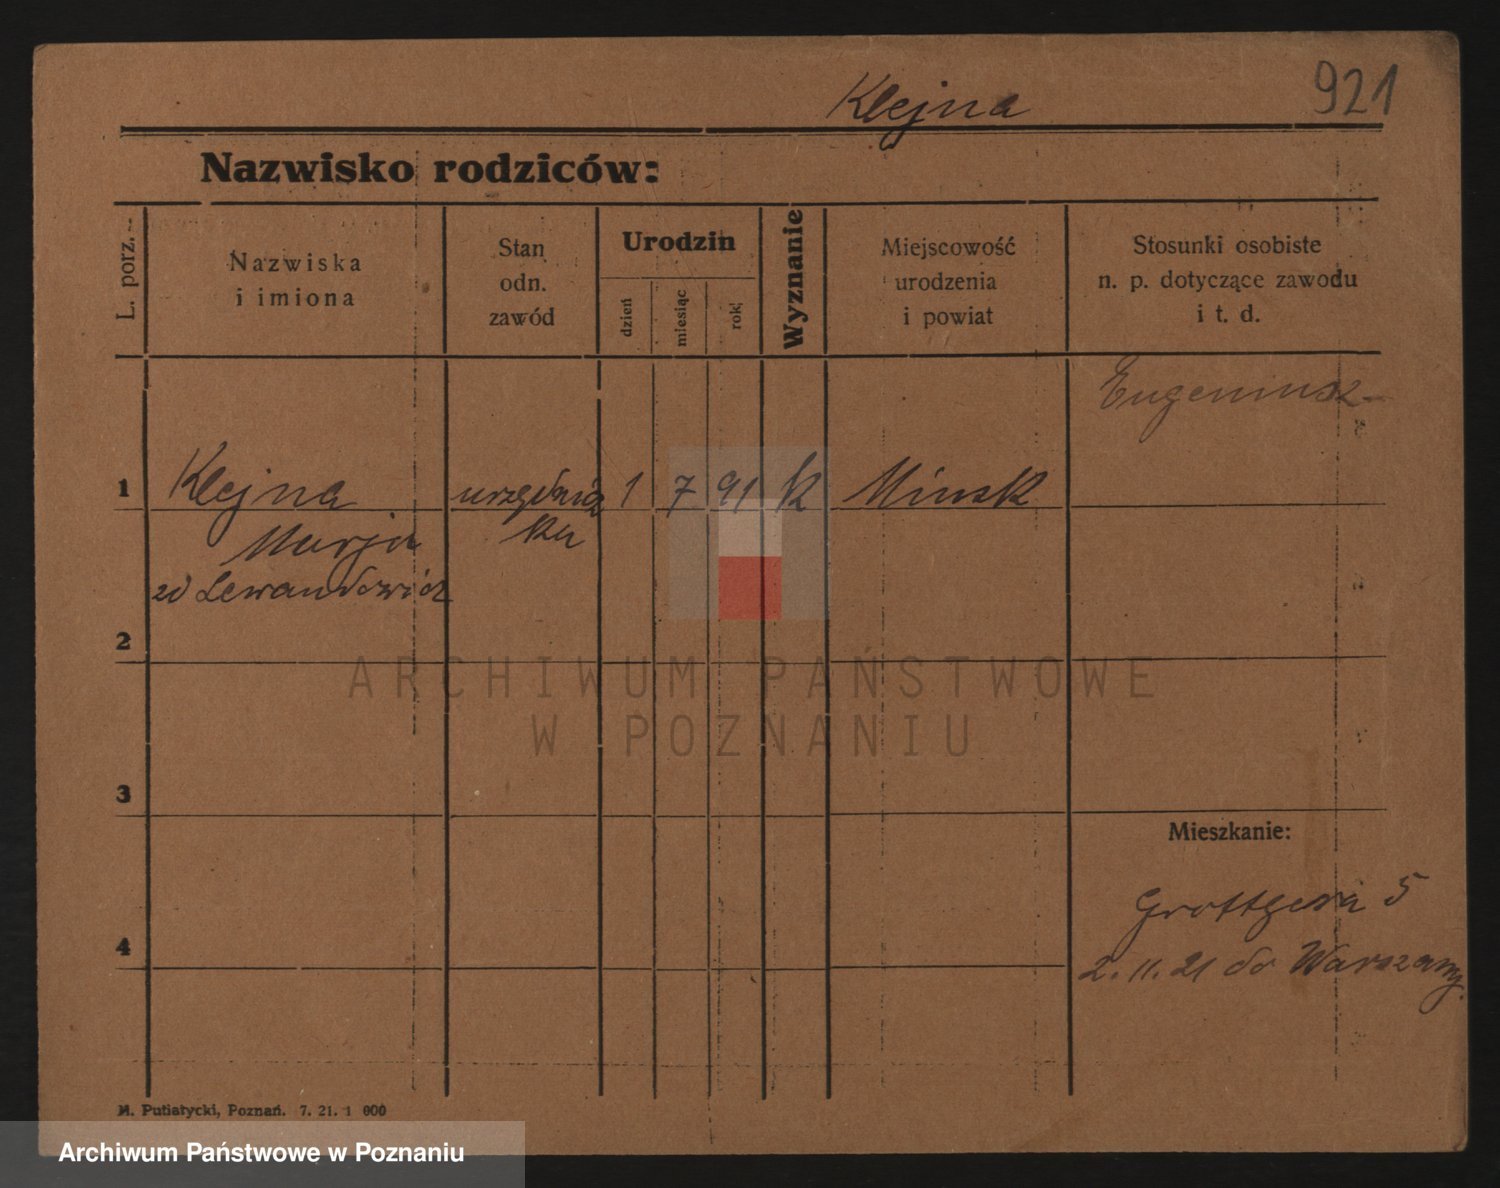 Klejna 921
Nazwisko rodziców:
L. porz.
Nazwiska
i imiona
Stan
odn.
zawód
Urodzin
dzień
miesiąc
rok
Wyznanie
Miejscowość
urodzenia
i powiat
Stosunki osobiste
n. p. dotyczące zawodu
i t. d.
Eugeniusz
1 Klejna urzędnicz 1 7 91 k Minsk
Marja ka
zd Lewandowicz
2
ARCHIWUM PAŃSTWOWE
W POZNANIU
3
Mieszkanie:
Grottgera 5
4 2.11.21 do Warszawy.
M. Putiatycki, Poznań. 7. 21. 1 000
Archiwum Państwowe w Poznaniu